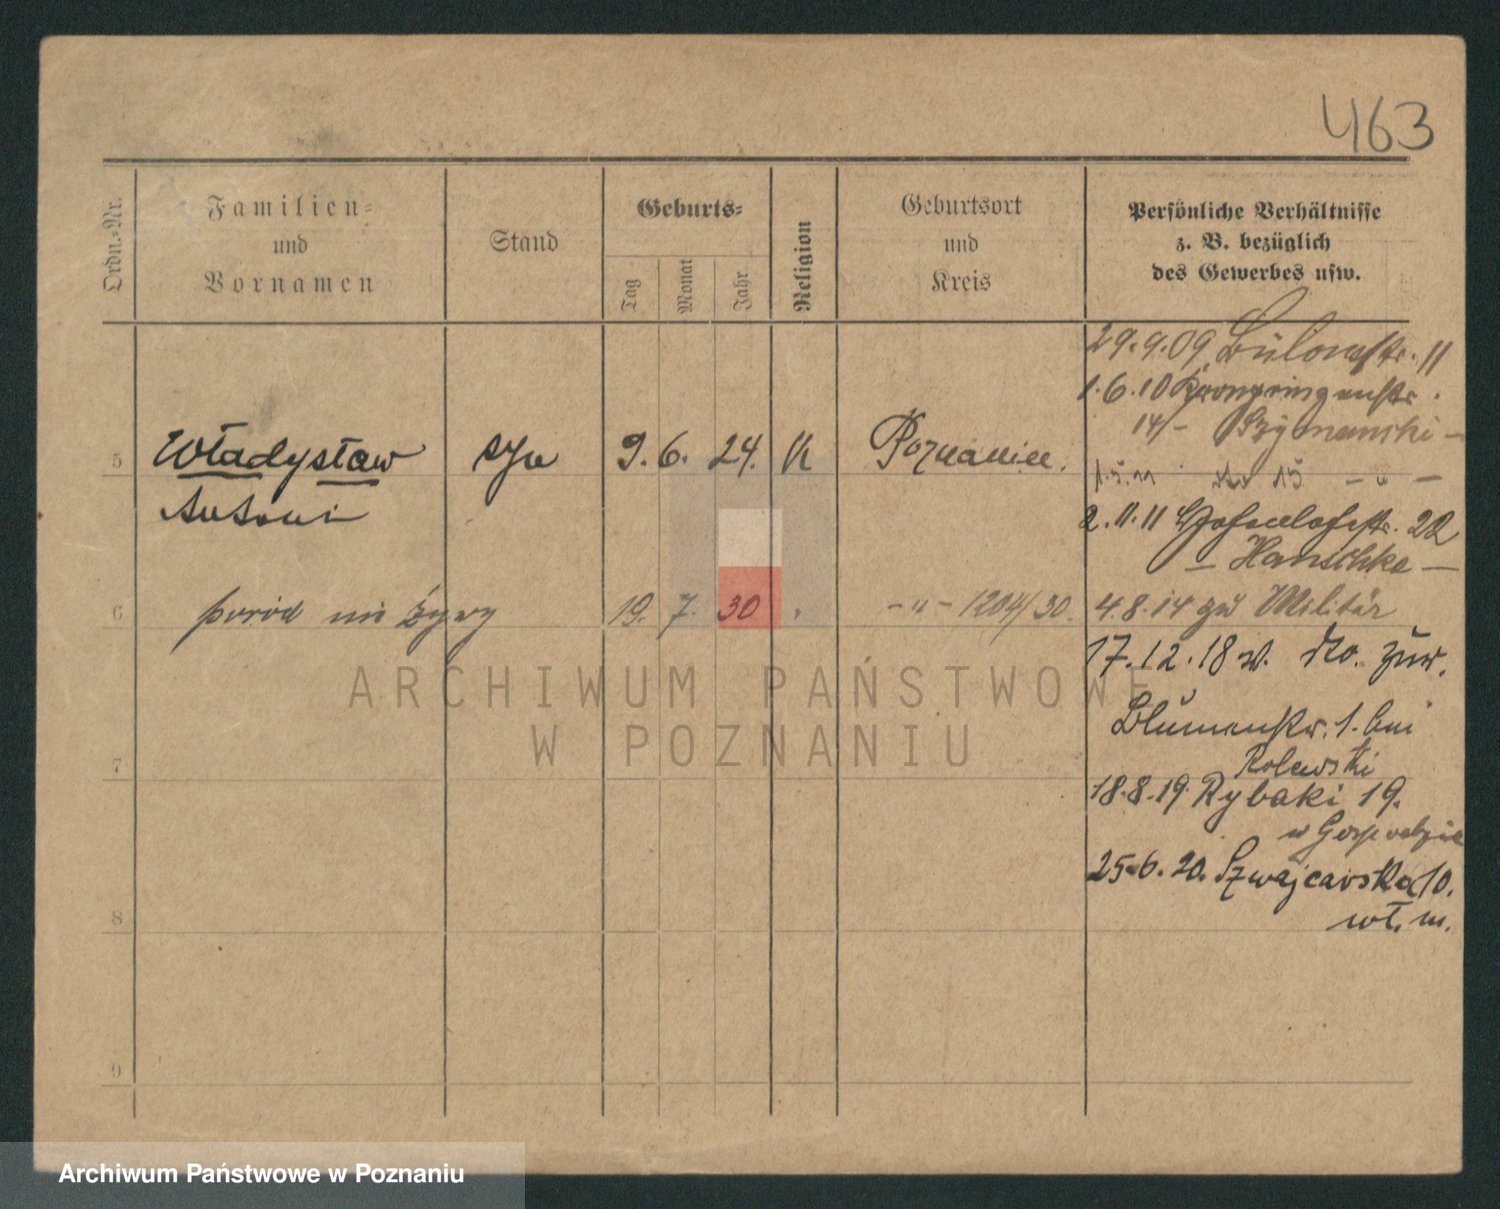 463
Ordn.=Nr.
Familien=
und
Vornamen
Stand
Geburts=
Tag
Monat
Jahr
Religion
Geburtsort
und
Kreis
Persönliche Verhältnisse
z. B. bezüglich
des Gewerbes usw.
5
Władysław
Antoni
syn
9. 6. 24.
K
Poznaniu.
6
poród nie żywy
19. 7. 30
-"- 1204/30.
7
8
9
29.9.09 Bülowstr. 11
1.6.10 Kronprinzenstr.
14/- Szymanski -
1.5.11 15 - " -
2.11.11 Hohenlohestr. 22
- Hanschke -
4.8.14 zu Militär
17.12.18 v. zur.
Blumenstr. 1. bei
Rolewski
18.8.19 Rybaki 19.
w
25.6.20. Szwajcarska 10.
wł. m.
ARCHIWUM PAŃSTWOWE
W POZNANIU
Archiwum Państwowe w Poznaniu